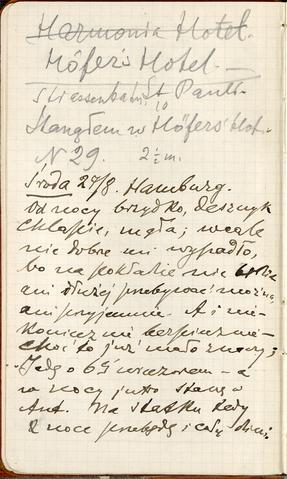 Harmonia Hotel.
Höfer's Hotel.—
Strassenbahn St Pauli.
10
Stanąłem w Höfers Hot.
N 29. 2½ m.
Środa 27/8. Hamburg.
Od nocy brzydko, deszczyk
chlapie, mgła; wcale
nie dobrze mi wypadło,
bo na pokładzie nie
ani dłużej przebywać można,
ani przyjemnie. A i nie-
koniecznie bezpiecznie—
choć to już mało znaczy;
Jadę o 6½ wieczorem — a
w nocy jutro stanę w
Ant. Na statku tedy
2 noce przebędę i cały dzień.